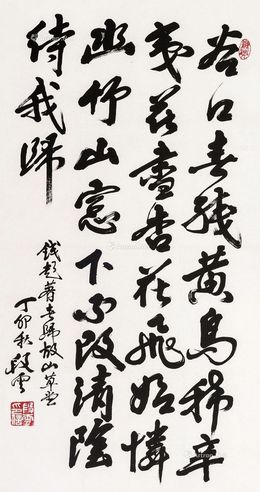 谷口春殘黃鳥稀辛
夷花盡杏花飛始憐
幽竹山窗下不改清陰
待我歸
錢起暮春歸故山草堂
丁卯秋段雲